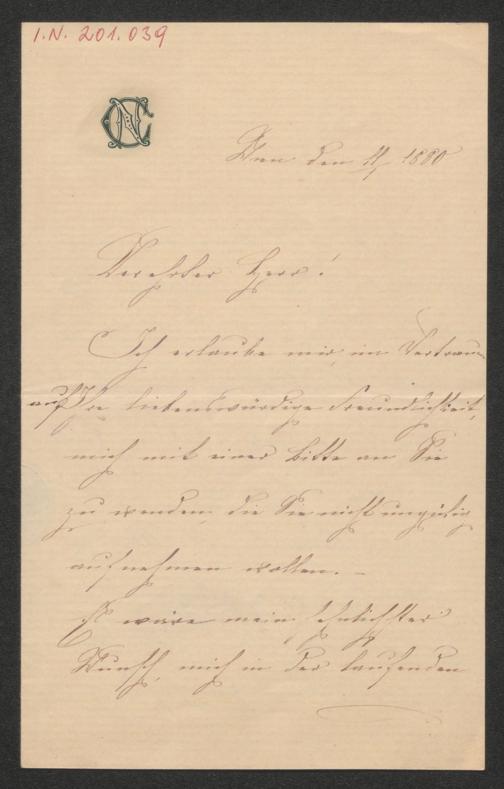 I.N. 201.039
Wien den 11/1 1880
Verehrter Herr!
Ich erlaube mir, im Vertrauen
auf Ihre liebenswürdige Freundlichkeit,
mich mit einer Bitte an Sie
zu wenden, die Sie nicht ungütig
aufnehmen wollen. –
Es wäre mein sehnlichster
Wunsch, mich in der laufenden